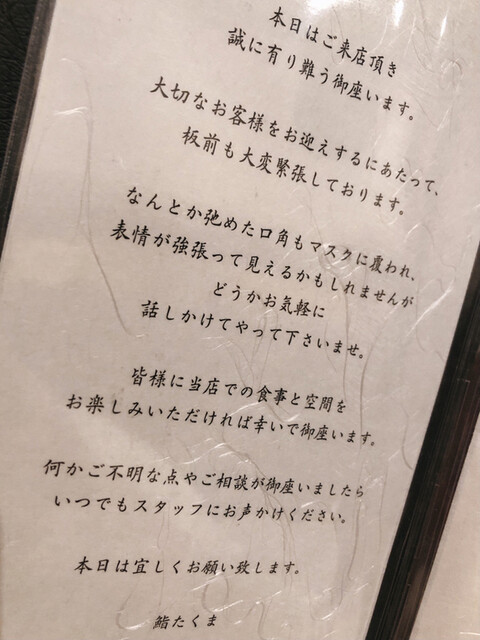 本日はご来店頂き
誠に有り難う御座います。
大切なお客様をお迎えするにあたって、
板前も大変緊張しております。
なんとか弛めた口角もマスクに覆われ、
表情が強張って見えるかもしれませんが
どうかお気軽に
話しかけてやって下さいませ。
皆様に当店での食事と空間を
お楽しみいただければ幸いで御座います。
何かご不明な点やご相談が御座いましたら
いつでもスタッフにお声かけください。
本日は宜しくお願い致します。
鮨たくま